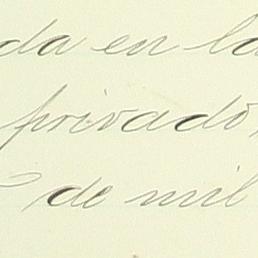 da en la
privado,
de mil